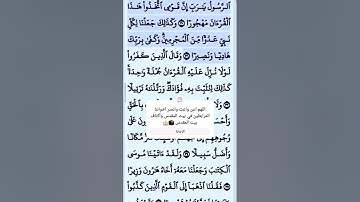 ٱلرَّسُولُ يَٰرَبِّ إِنَّ قَوْمِي ٱتَّخَذُوا۟ هَٰذَا
ٱلْقُرْءَانَ مَهْجُورًا وَكَذَٰلِكَ جَعَلْنَا لِكُلِّ
نَبِيٍّ عَدُوًّا مِّنَ ٱلْمُجْرِمِينَ وَكَفَىٰ بِرَبِّكَ
هَادِيًا وَنَصِيرًا وَقَالَ ٱلَّذِينَ كَفَرُوا۟
لَوْلَا نُزِّلَ عَلَيْهِ ٱلْقُرْءَانُ جُمْلَةً وَٰحِدَةً
كَذَٰلِكَ لِنُثَبِّتَ بِهِۦ فُؤَادَكَ وَرَتَّلْنَٰهُ تَرْتِيلًا
بِٱلْحَقِّ
اللهم أعن وأغث وانصر اخواننا
المرابطين في بيت المقدس وأكناف
بيت المقدس
وُجُوهِهِمْ
وَأَضَلُّ سَبِيلًا وَلَقَدْ ءَاتَيْنَا مُوسَى
ٱلْكِتَٰبَ وَجَعَلْنَا مَعَهُۥٓ أَخَاهُ هَٰرُونَ وَزِيرًا
فَقُلْنَا ٱذْهَبَآ إِلَى ٱلْقَوْمِ ٱلَّذِينَ كَذَّبُوا۟